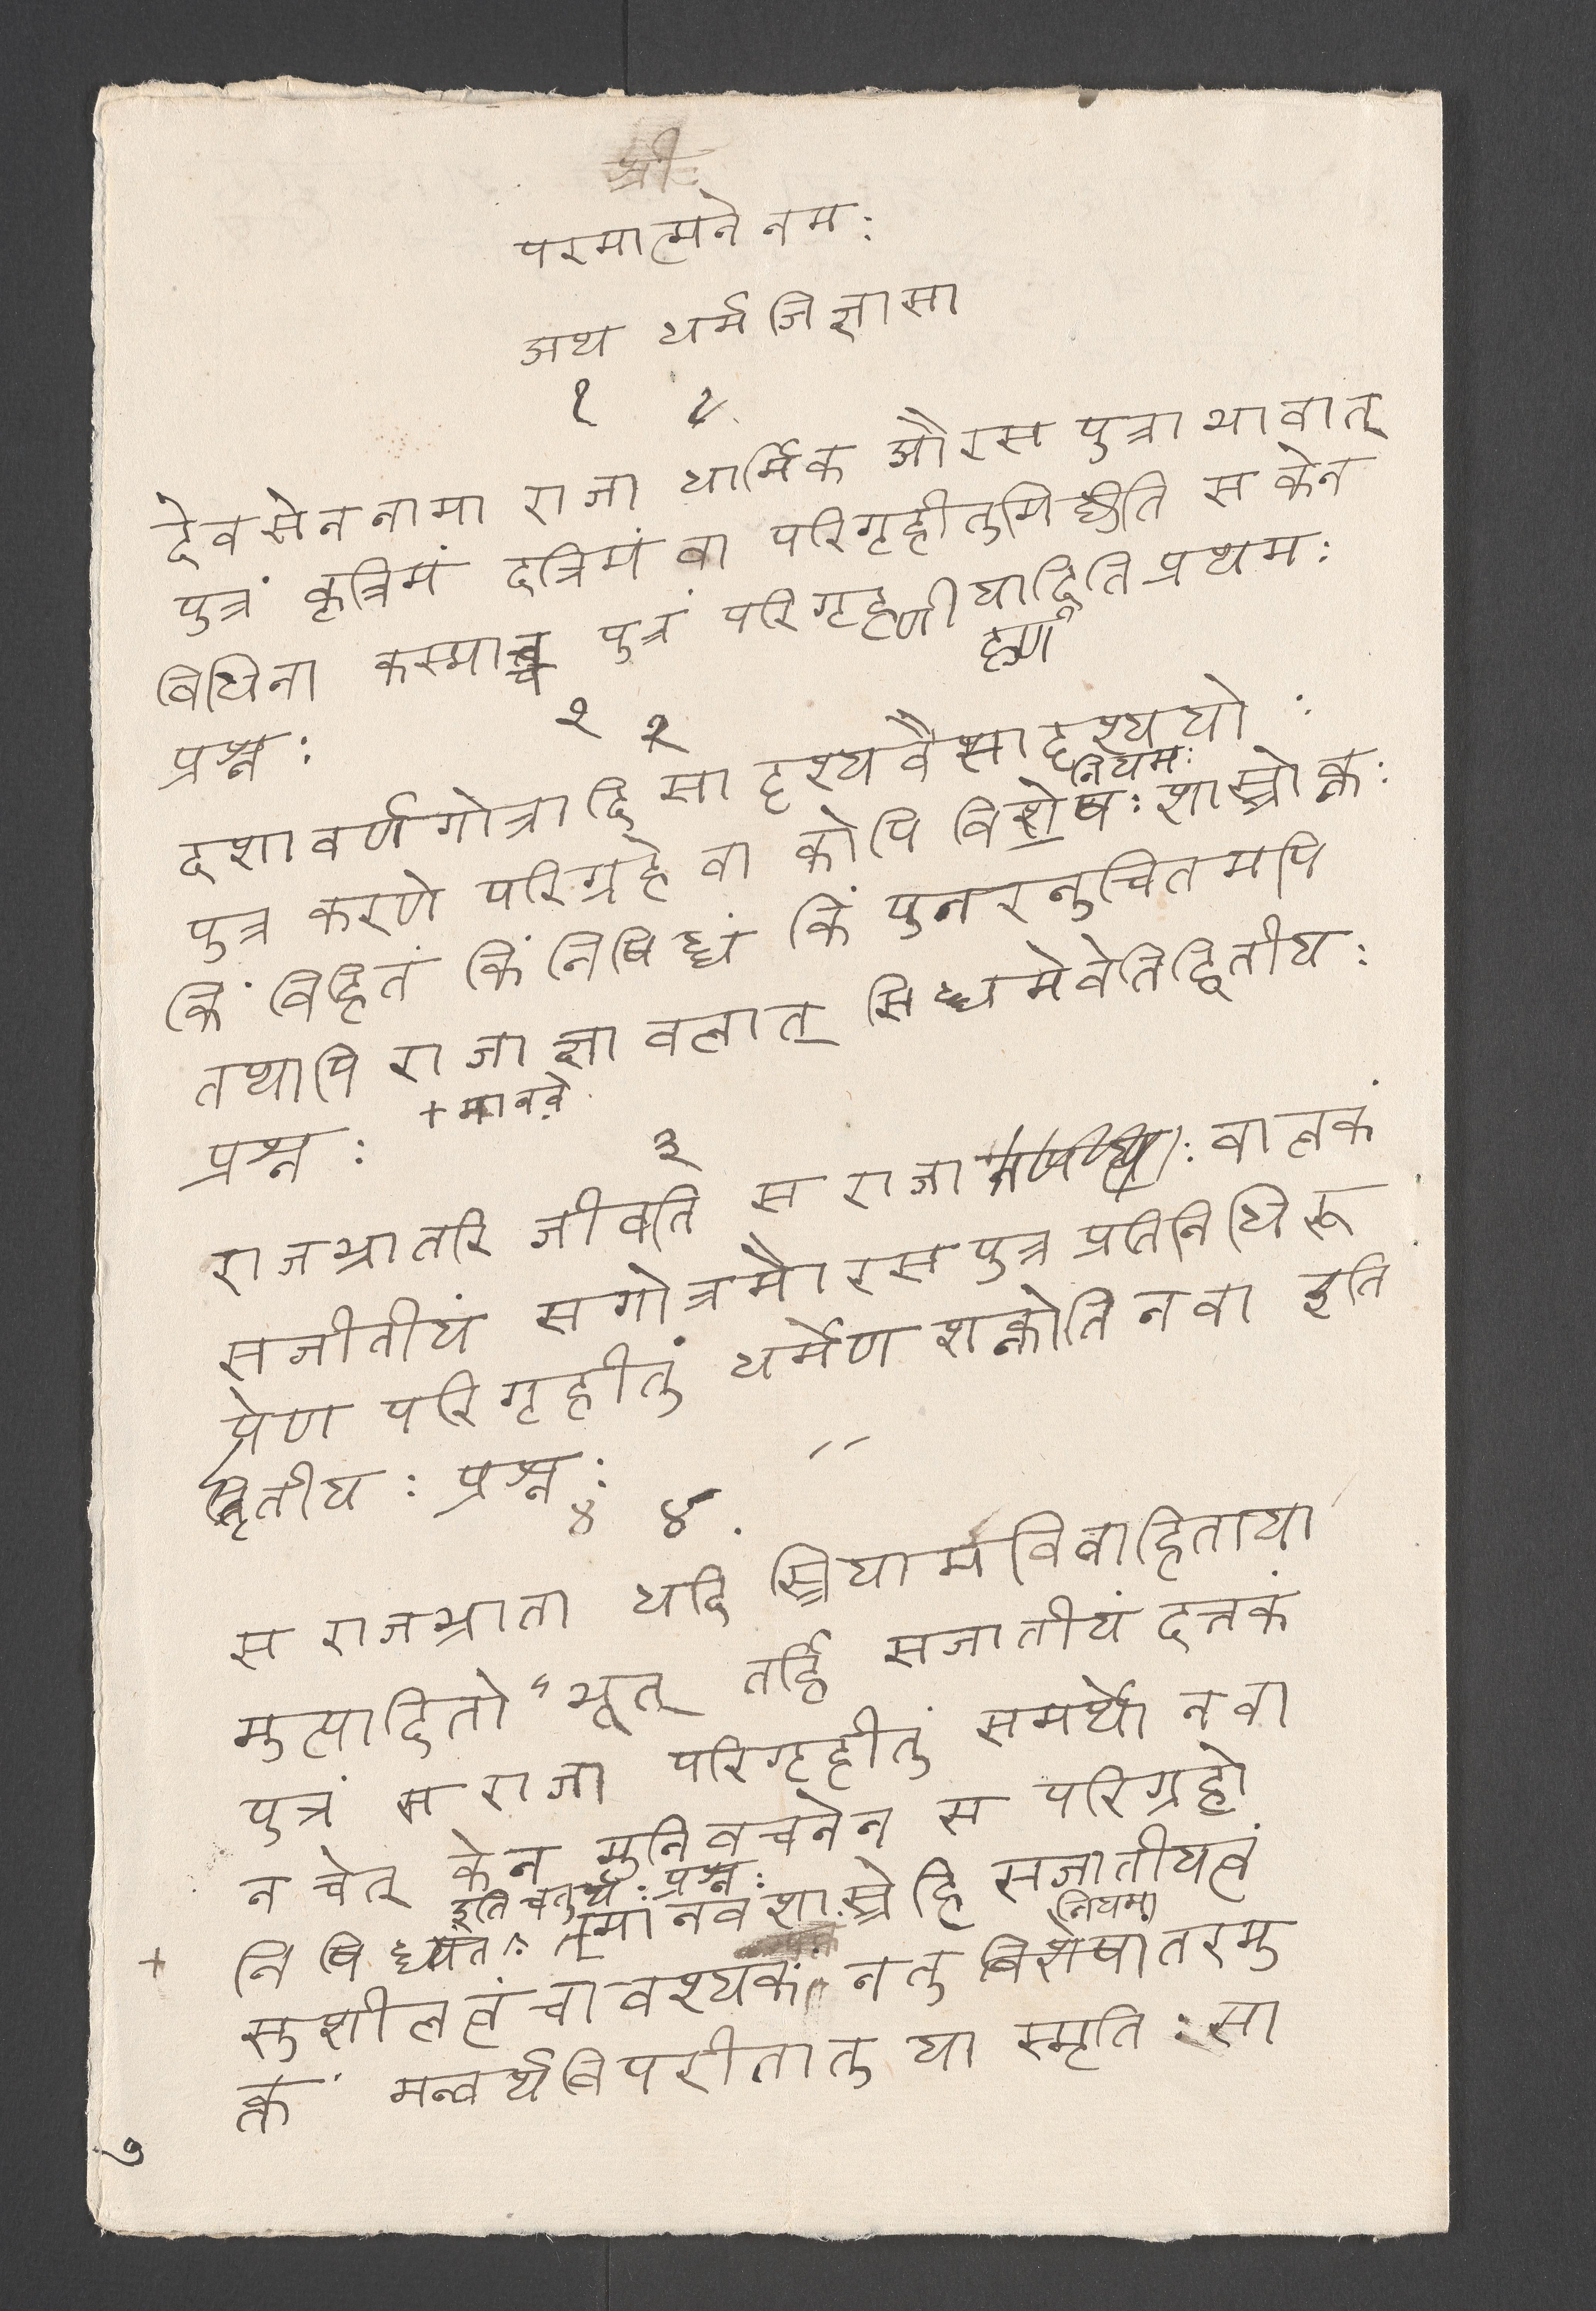 श्रीः
परमात्मने नमः
अथ धर्मजिज्ञासा
१ १
देवसेननामा राजा धार्मिक औरसपुत्राभावात्
पुत्रं कृत्रिमं दत्रिमं वा परिगृहीतुमिछति स केन
विधिना कस्माच्च पुत्रं परिगृह्णीयादिति प्रथमः
ह्णी
प्रश्नः
२ २
दशावर्णगोत्रादिसादृश्यवैसादृश्ययोः
नियमः
पुत्रकरणे परिग्रहे वा कोपि विशेषः शास्त्रोक्तः
किं विहितं किं निषिद्धं किं पुनरनुचितमपि
तथापि राजाज्ञावलात् सिद्धमेवेतिद्वितीयः
प्रश्नः
+ मानवे
३
राजभ्रातरि जीवति स राजा वालकं
सजीतीयं सगोत्रमौरसपुत्रप्रतिनिधिरू
पेण परिगृहीतुं धर्मेण शक्नोति नवा इति
तृतीयः प्रश्नः
४ ४
स राजभ्राता यदि स्त्रियामविवाहिताया
मुत्पादितो ऽभूत् तर्हि सजातीयं दत्तकं
पुत्रं स राजा परिगृहीतुं समर्थो नवा
न चेत् केन मुनिवचनेन स परिग्रहो
इति चतुर्थः प्रश्नः
+ निषिध्यते मानवशास्त्रे हि सजातीयत्वं
नियमा
सुशीलत्वं चावश्यकं नतु विशेषांतरमु
क्तं मन्वर्थविपरीतातु या स्मृतिः सा
७